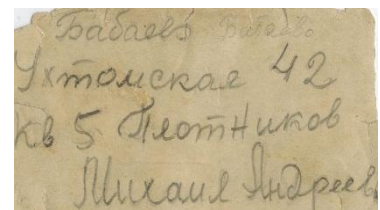 Бабаево
Ухтомская 42
кв 5 Плотников
Михаил Андреев